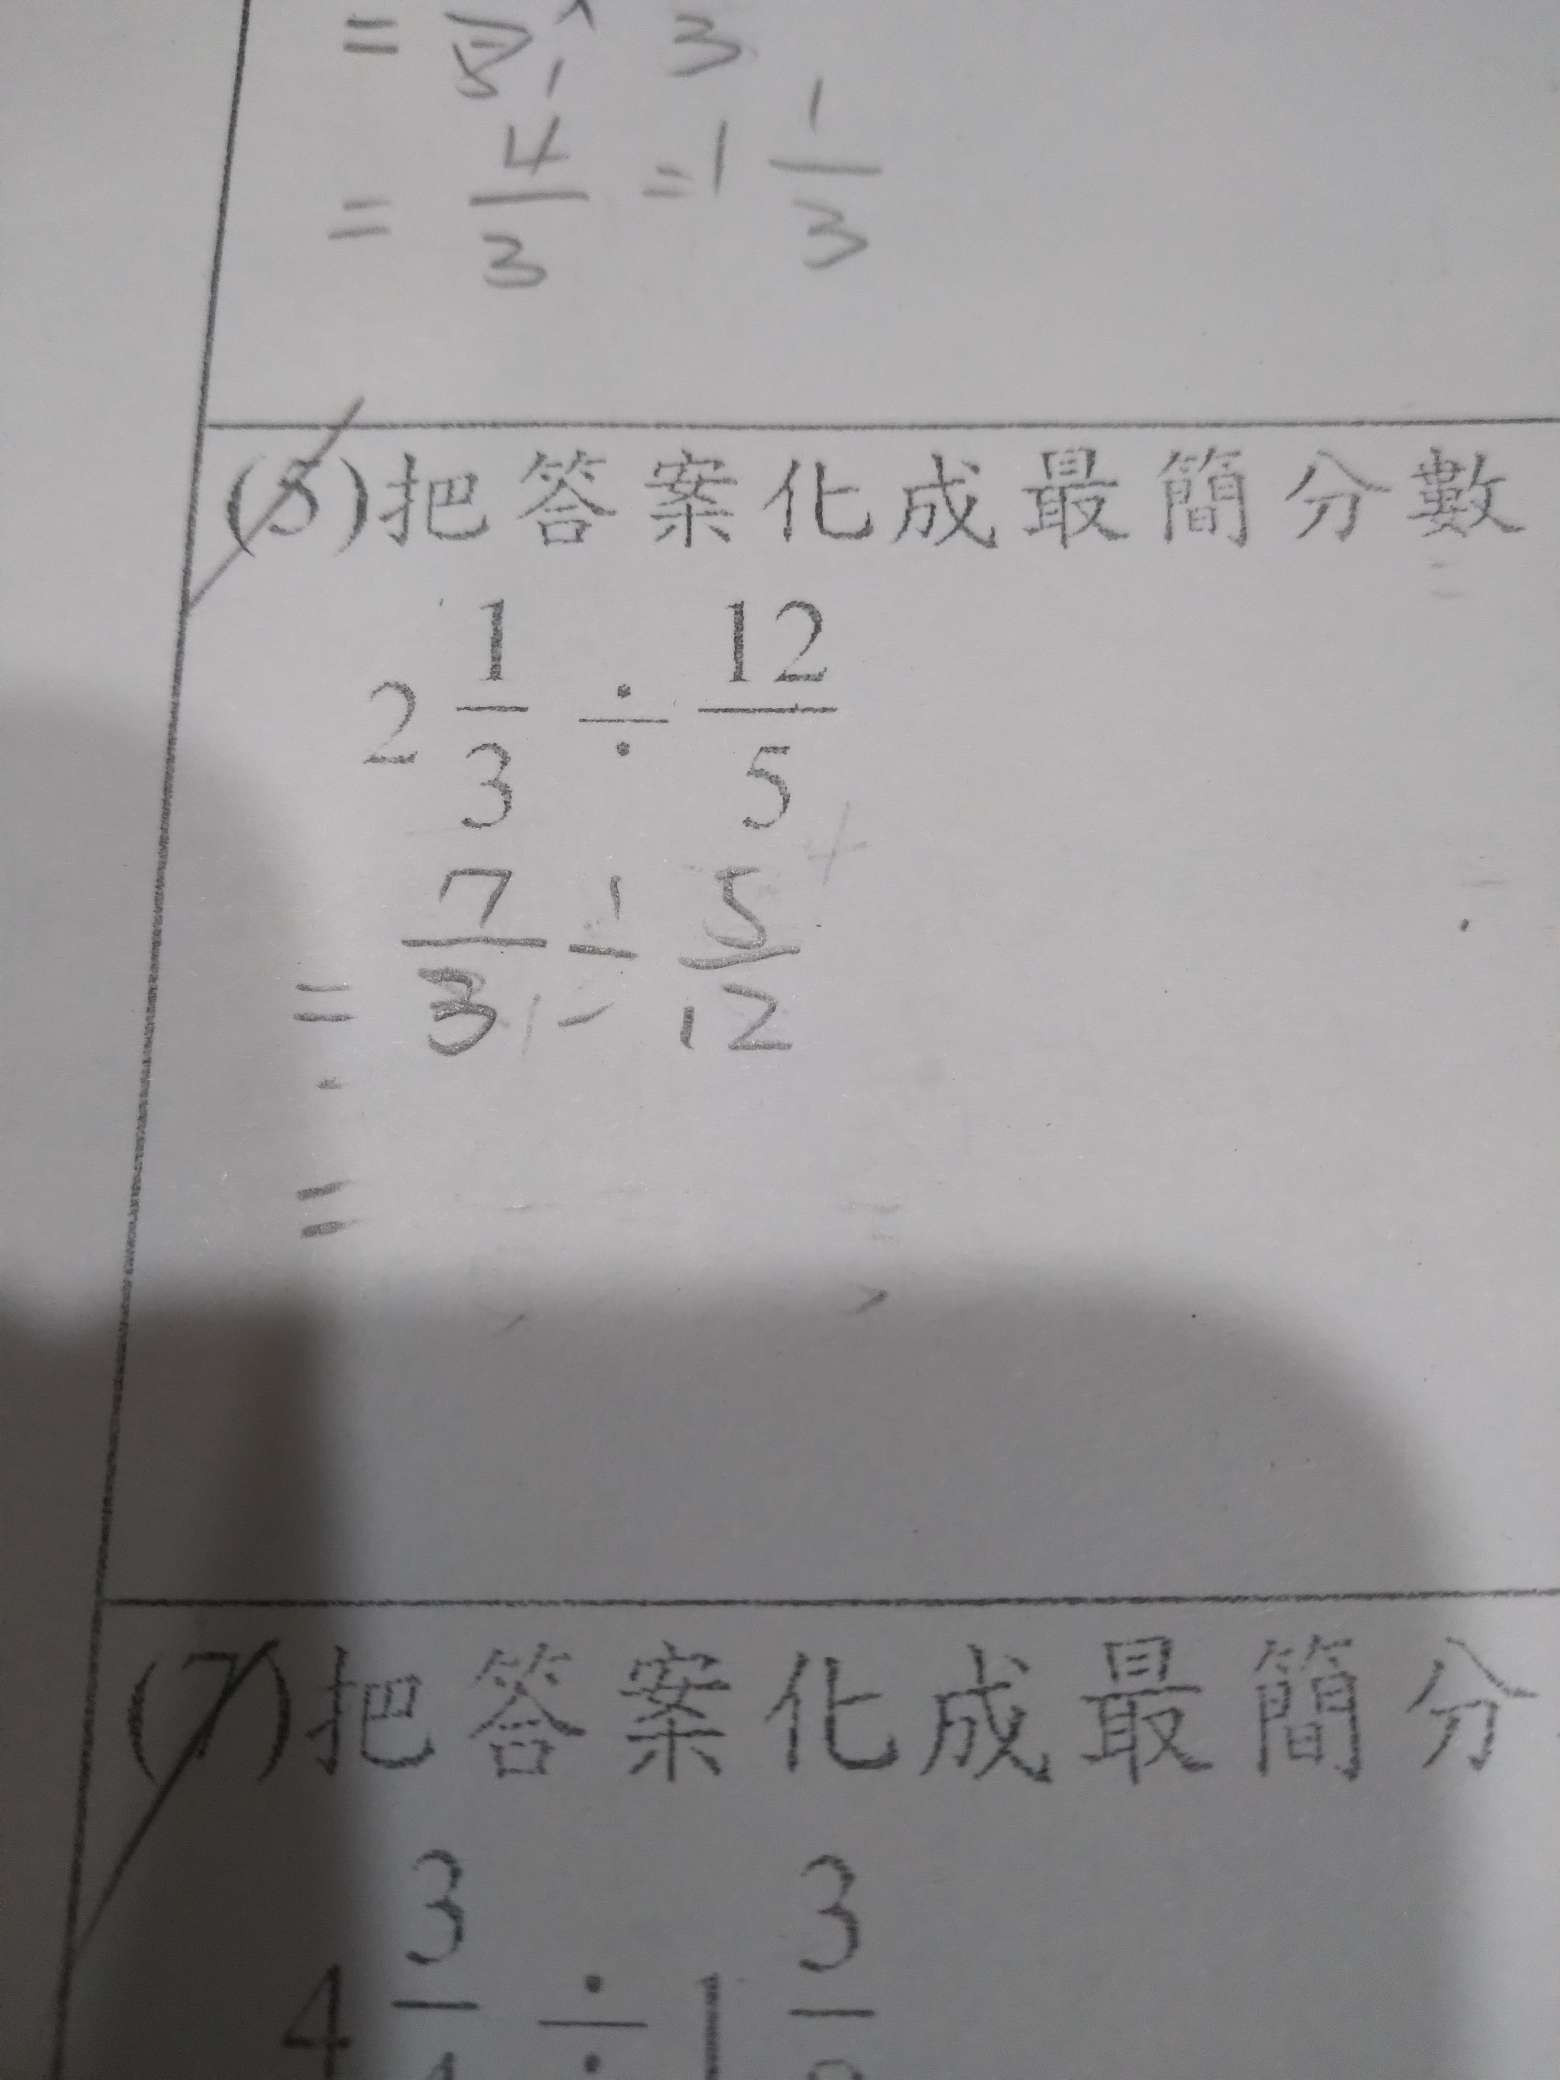 = 5 3
= 4/3 = 1 1/3
(5)把答案化成最簡分數
2 1/3 ÷ 12/5
= 7/3 ÷ 5/12
=
(7)把答案化成最簡分
4 3 ÷ 1 3